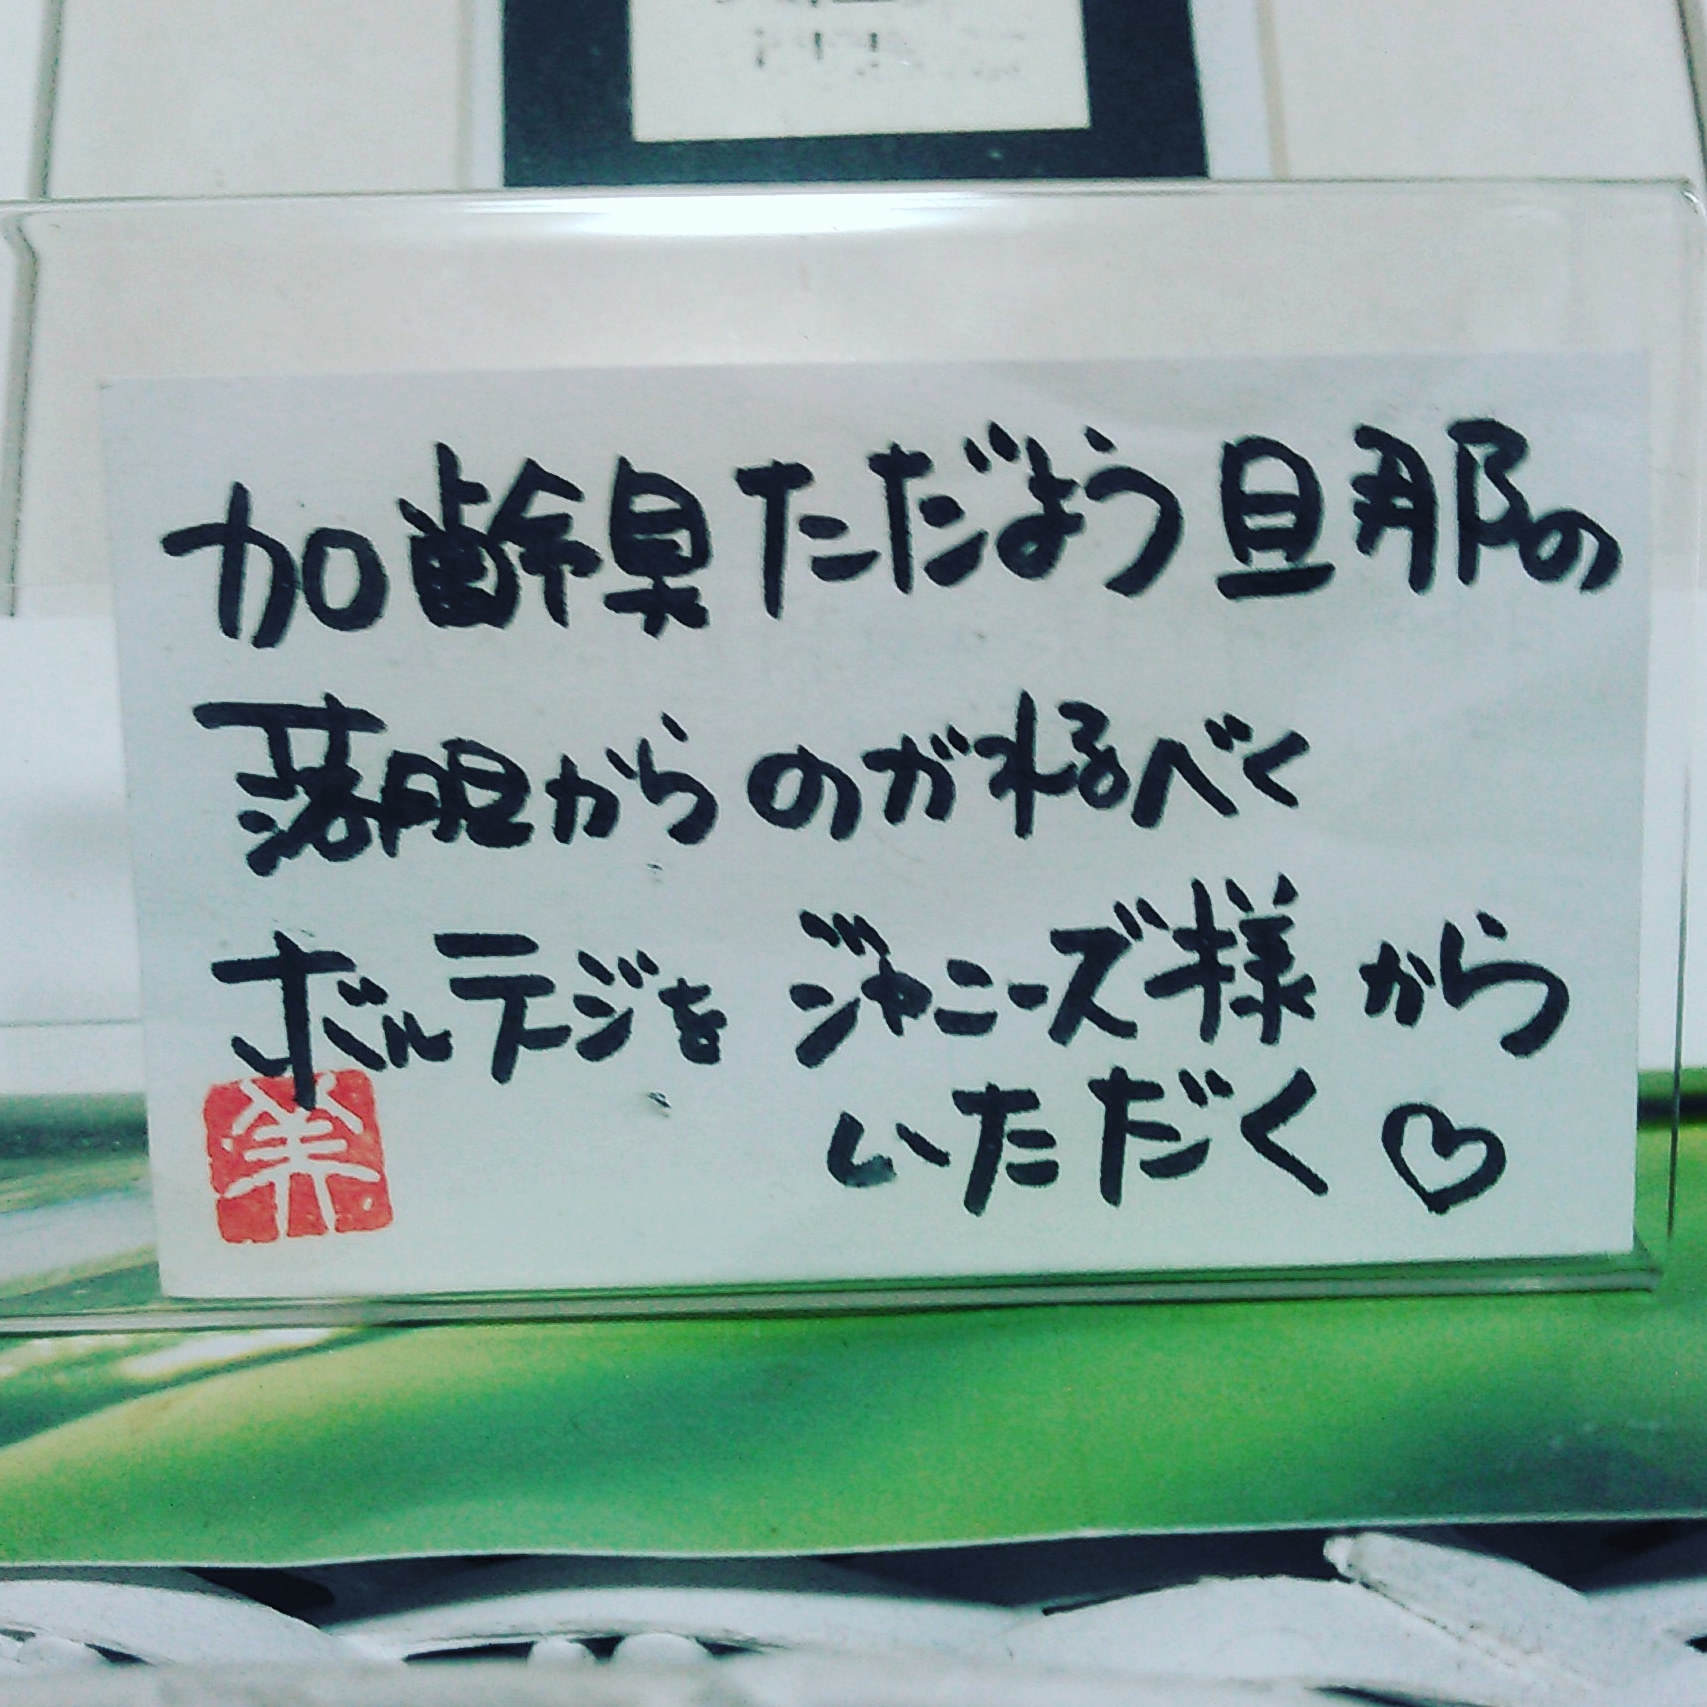 加齢臭ただよう旦那の
落胆からのがれるべく
ボルテジをジャニーズ様から
いただく♡